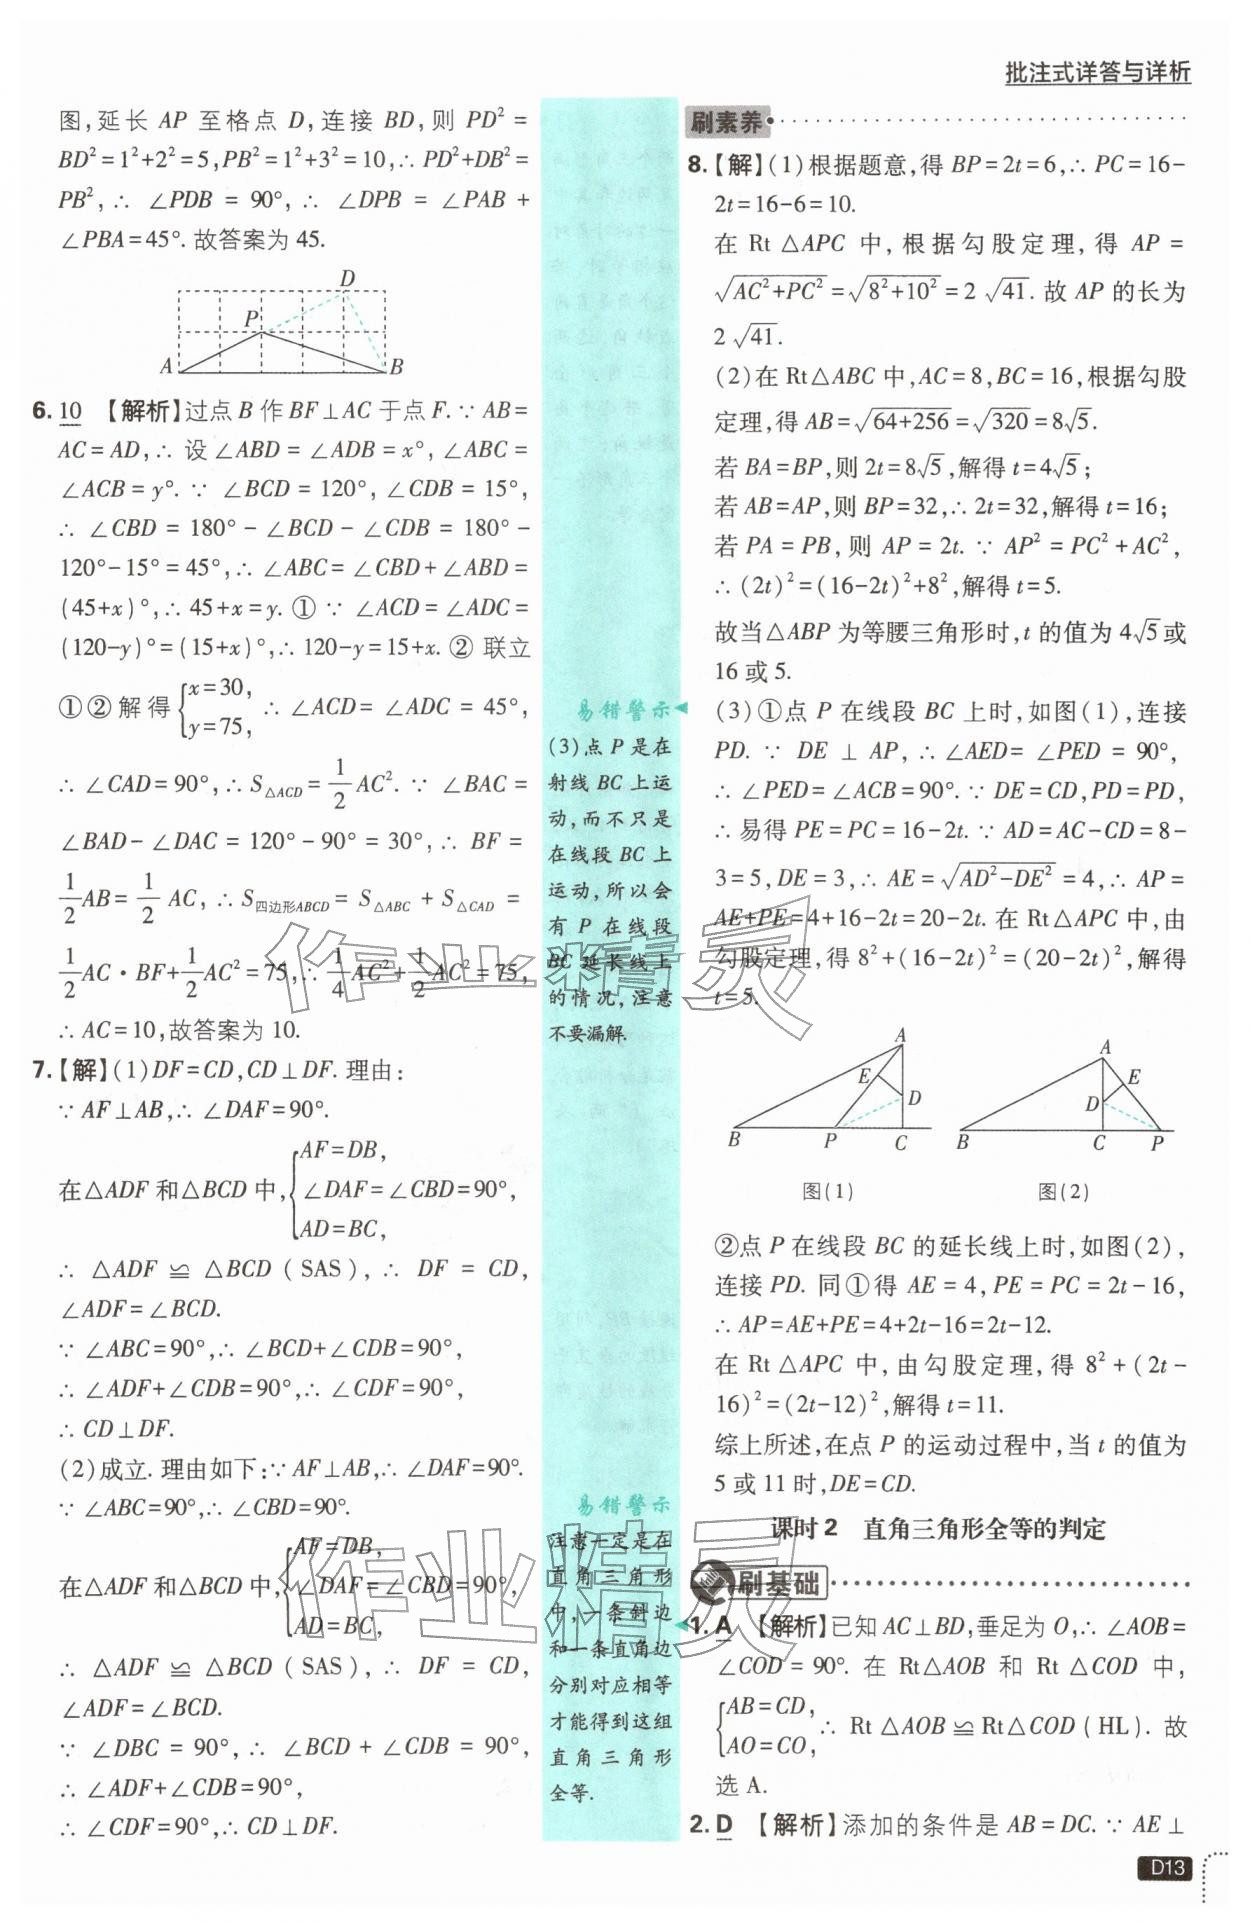 批注式详答与详析
图,延长 AP 至格点 D,连接 BD,则 PD²=
BD²=1²+2²=5,PB²=1²+3²=10,∴ PD²+DB²=
PB²,∴ ∠PDB = 90°,∴ ∠DPB = ∠PAB +
∠PBA=45°. 故答案为 45.
D
P
A
B
6. 10 【解析】过点 B 作 BF⊥AC 于点 F. ∵ AB=
AC=AD,∴ 设 ∠ABD = ∠ADB = x°,∠ABC =
∠ACB = y°. ∵ ∠BCD = 120°,∠CDB = 15°,
∴ ∠CBD = 180° - ∠BCD - ∠CDB = 180° -
120°-15°=45°,∴ ∠ABC=∠CBD+∠ABD=
(45+x)°,∴ 45+x=y. ① ∵ ∠ACD=∠ADC=
(120-y)°=(15+x)°,∴ 120-y=15+x. ② 联立
①②解得{x=30, y=75, ∴ ∠ACD= ∠ADC = 45°,
∴ ∠CAD=90°,∴ S△ACD=1/2 AC². ∵ ∠BAC =
∠BAD- ∠DAC = 120° - 90° = 30°,∴ BF =
1/2 AB= 1/2 AC,∴ S四边形ABCD= S△ABC + S△CAD =
1/2 AC·BF+1/2 AC²=75,∴ 1/4 AC²+1/2 AC²=75,
∴ AC=10,故答案为 10.
7.【解】(1)DF=CD,CD⊥DF. 理由:
∵ AF⊥AB,∴ ∠DAF=90°.
在△ADF 和△BCD 中,{AF=DB, ∠DAF=∠CBD=90°, AD=BC,
∴ △ADF ≌ △BCD (SAS),∴ DF = CD,
∠ADF=∠BCD.
∵ ∠ABC=90°,∴ ∠BCD+∠CDB=90°,
∴ ∠ADF+∠CDB=90°,∴ ∠CDF=90°,
∴ CD⊥DF.
(2)成立. 理由如下:∵ AF⊥AB,∴ ∠DAF=90°.
∵ ∠ABC=90°,∴ ∠CBD=90°.
在△ADF 和△BCD 中,{AF=DB, ∠DAF=∠CBD=90°, AD=BC,
∴ △ADF ≌ △BCD (SAS),∴ DF = CD,
∠ADF=∠BCD.
∵ ∠DBC = 90°,∴ ∠BCD + ∠CDB = 90°,
∴ ∠ADF+∠CDB=90°,
∴ ∠CDF=90°,∴ CD⊥DF.
易错警示
(3)点 P 是在
射线 BC 上运
动,而不只是
在线段 BC 上
运动,所以会
有 P 在线段
BC 延长线上
的情况,注意
不要漏解.
易错警示
注意一定是在
直角三角形
中,一条斜边
和一条直角边
分别对应相等
才能得到这组
直角三角形
全等.
刷素养
8.【解】(1)根据题意,得 BP=2t=6,∴ PC=16-
2t=16-6=10.
在 Rt △APC 中,根据勾股定理,得 AP =
√(AC²+PC²)=√(8²+10²)=2 √41. 故 AP 的长为
2 √41.
(2)在 Rt△ABC 中,AC=8,BC=16,根据勾股
定理,得 AB=√(64+256)=√320=8√5.
若 BA=BP,则 2t=8√5,解得 t=4√5;
若 AB=AP,则 BP=32,∴ 2t=32,解得 t=16;
若 PA = PB,则 AP = 2t. ∵ AP² = PC²+AC²,
∴ (2t)²=(16-2t)²+8²,解得 t=5.
故当△ABP 为等腰三角形时,t 的值为 4√5或
16 或 5.
(3)①点 P 在线段 BC 上时,如图(1),连接
PD. ∵ DE ⊥ AP,∴ ∠AED= ∠PED = 90°,
∴ ∠PED=∠ACB=90°. ∵ DE=CD,PD=PD,
∴ 易得 PE=PC=16-2t. ∵ AD=AC-CD=8-
3=5,DE=3,∴ AE=√(AD²-DE²)=4,∴ AP=
AE+PE=4+16-2t=20-2t. 在 Rt△APC 中,由
勾股定理,得 8²+(16-2t)²=(20-2t)²,解得
t=5.
A
E
D
B
P
C
图(1)
A
E
D
B
C
P
图(2)
②点 P 在线段 BC 的延长线上时,如图(2),
连接 PD. 同①得 AE=4,PE=PC=2t-16,
∴ AP=AE+PE=4+2t-16=2t-12.
在 Rt △APC 中,由勾股定理,得 8²+(2t-
16)²=(2t-12)²,解得 t=11.
综上所述,在点 P 的运动过程中,当 t 的值为
5 或 11 时,DE=CD.
课时 2 直角三角形全等的判定
刷基础
1. A 【解析】已知 AC⊥BD,垂足为 O,∴ ∠AOB=
∠COD = 90°. 在 Rt△AOB 和 Rt △COD 中,
{AB=CD, AO=CO, ∴ Rt △AOB ≌ Rt△COD (HL). 故
选 A.
2. D 【解析】添加的条件是 AB = DC. ∵ AE ⊥
D13
作业精灵
作业精灵